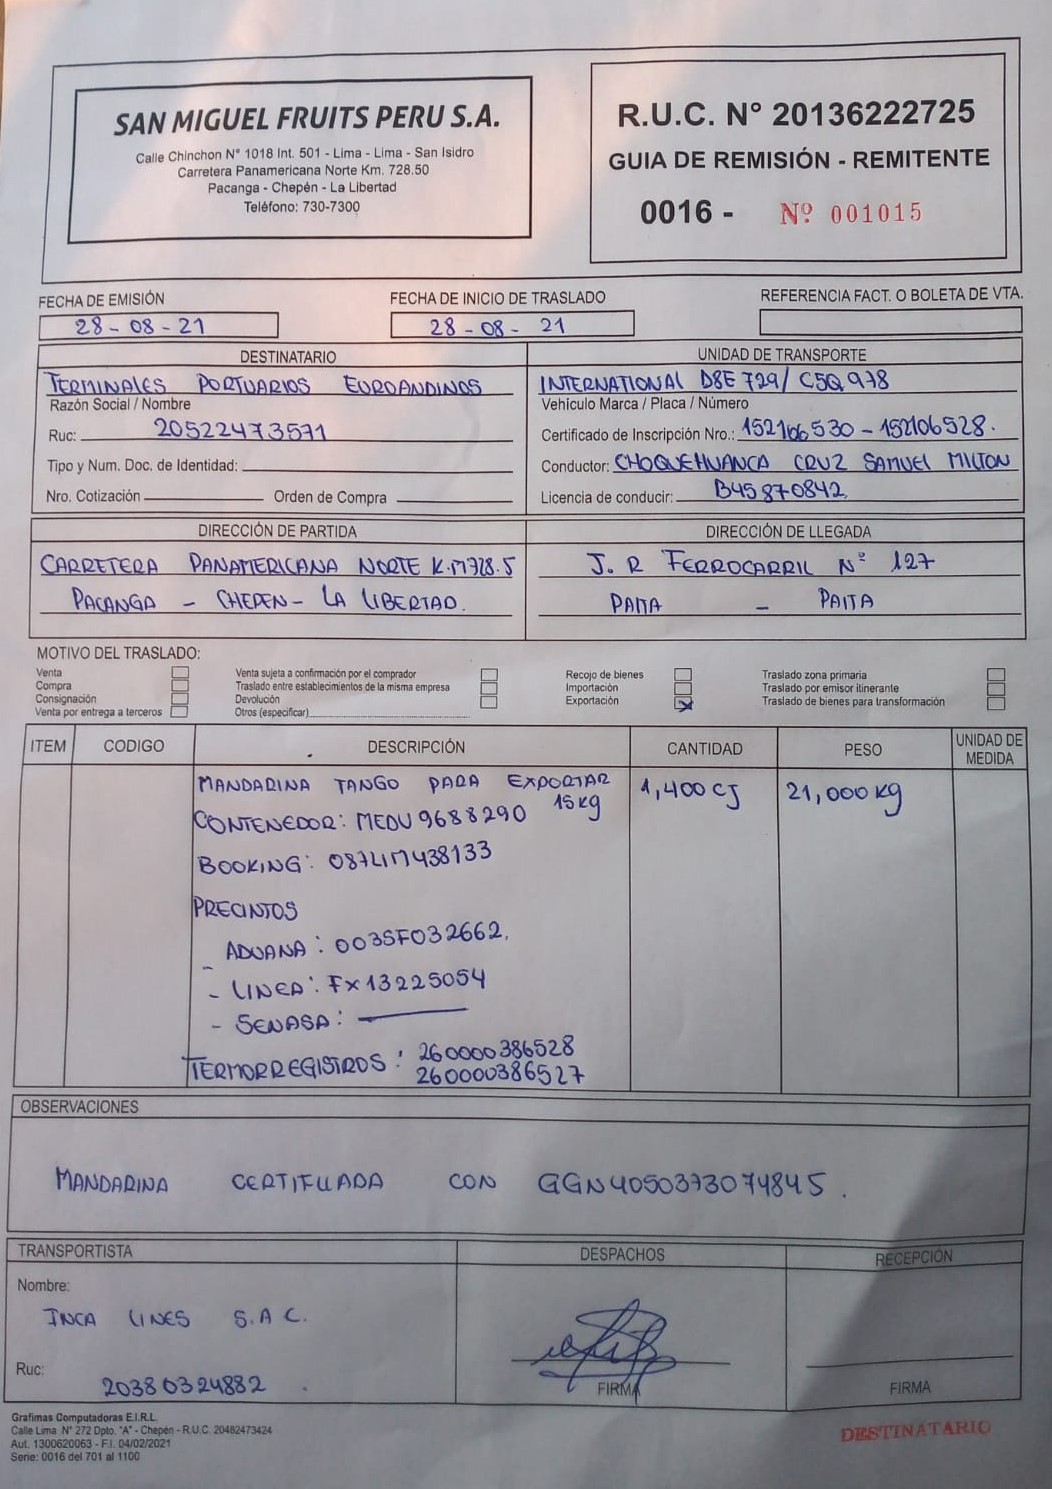 SAN MIGUEL FRUITS PERU S.A.
Calle Chinchon N° 1018 Int. 501 - Lima - Lima - San Isidro
Carretera Panamericana Norte Km. 728.50
Pacanga - Chepén - La Libertad
Teléfono: 730-7300
R.U.C. N° 20136222725
GUIA DE REMISIÓN - REMITENTE
0016 - Nº 001015
FECHA DE EMISIÓN
28-08-21
FECHA DE INICIO DE TRASLADO
28-08-21
REFERENCIA FACT. O BOLETA DE VTA.
DESTINATARIO
TERMINALES PORTUARIOS EUROANDINOS
Razón Social / Nombre
Ruc: 20522473571
Tipo y Num. Doc. de Identidad:
Nro. Cotización Orden de Compra
UNIDAD DE TRANSPORTE
INTERNATIONAL D8E 729/ C5Q 978
Vehículo Marca / Placa / Número
Certificado de Inscripción Nro.: 152106530 - 152106528.
Conductor: CHOQUEHUANCA CRUZ SAMUEL MILTON
Licencia de conducir: B45870842.
DIRECCIÓN DE PARTIDA
CARRETERA PANAMERICANA NORTE K.M728.5
PACANGA - CHEPEN - LA LIBERTAD.
DIRECCIÓN DE LLEGADA
J. R FERROCARRIL Nº 127
PAITA - PAITA
MOTIVO DEL TRASLADO:
Venta
Compra
Consignación
Venta por entrega a terceros
Venta sujeta a confirmación por el comprador
Traslado entre establecimientos de la misma empresa
Devolución
Otros (especificar)
Recojo de bienes
Importación
Exportación X
Traslado zona primaria
Traslado por emisor itinerante
Traslado de bienes para transformación
ITEM CODIGO DESCRIPCIÓN CANTIDAD PESO UNIDAD DE MEDIDA
MANDARINA TANGO PARA EXPORTAR 1,400 CJ 21,000 kg
15 kg
CONTENEDOR: MEDU 9688290
BOOKING: 087LIM438133
PRECINTOS
- ADUANA: 003SF032662.
- LINEA: FX13225054
- SENASA: ———
TERMORREGISTROS: 260000386528
260000386527
OBSERVACIONES
MANDARINA CERTIFICADA CON GGN4050373074845.
TRANSPORTISTA
Nombre:
INCA LINES S.A C.
Ruc:
20380324882
DESPACHOS
FIRMA
RECEPCIÓN
FIRMA
Grafimas Computadoras E.I.R.L.
Calle Lima N° 272 Dpto. "A" - Chepén - R.U.C. 20482473424
Aut. 1300620063 - F.I. 04/02/2021
Serie: 0016 del 701 al 1100
DESTINATARIO